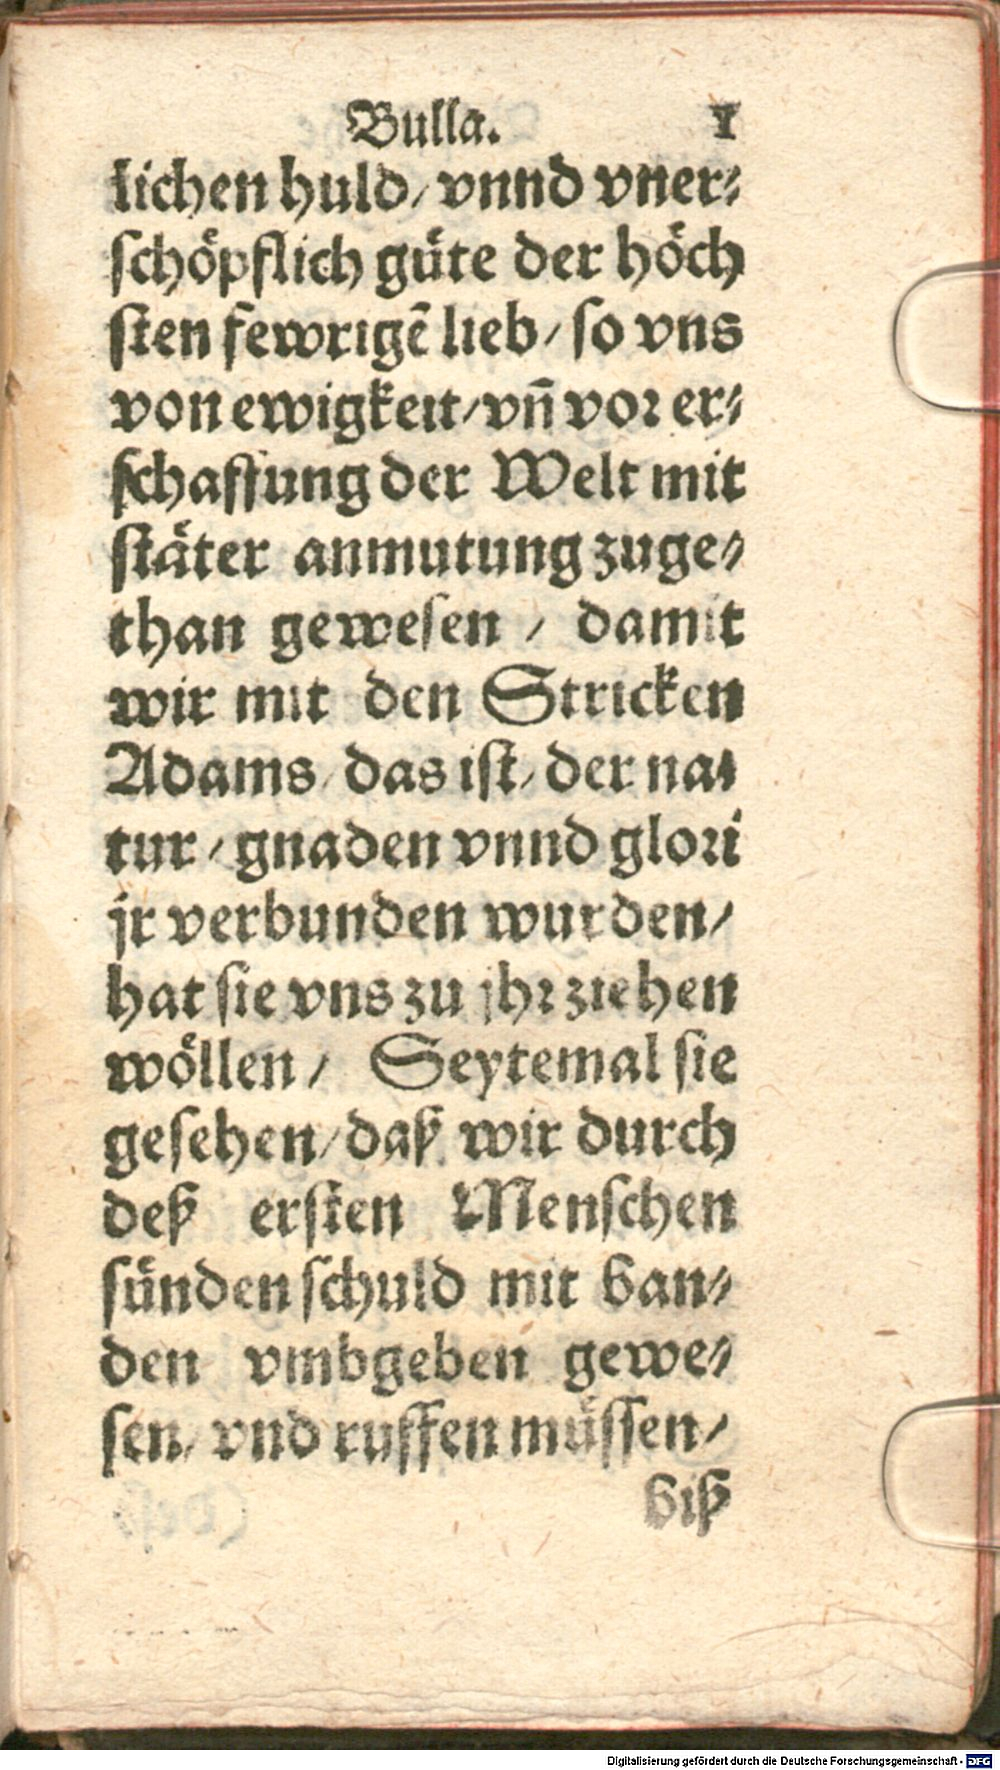 Bulla. 1
lichen huld/ vnnd vner⸗
ſchöpflich güte der höch
ſten fewrigẽ lieb/ ſo vns
von ewigkeit/ vñ vor er⸗
ſchaffung der Welt mit
ſtäter anmutung zuge⸗
than gewesen / damit
wir mit den Stricken
Adams/ das iſt/ der na⸗
tur/ gnaden vnnd glori
jr verbunden wurden/
hat ſie vns zu jhr ziehen
wöllen/ Seytemal ſie
geſehen/ daß wir durch
deß erſten Menſchen
ſünden ſchuld mit ban⸗
den vmbgeben gewe⸗
ſen/ vnd ruffen müſſen/
biß
Digitalisierung gefördert durch die Deutsche Forschungsgemeinschaft - DFG